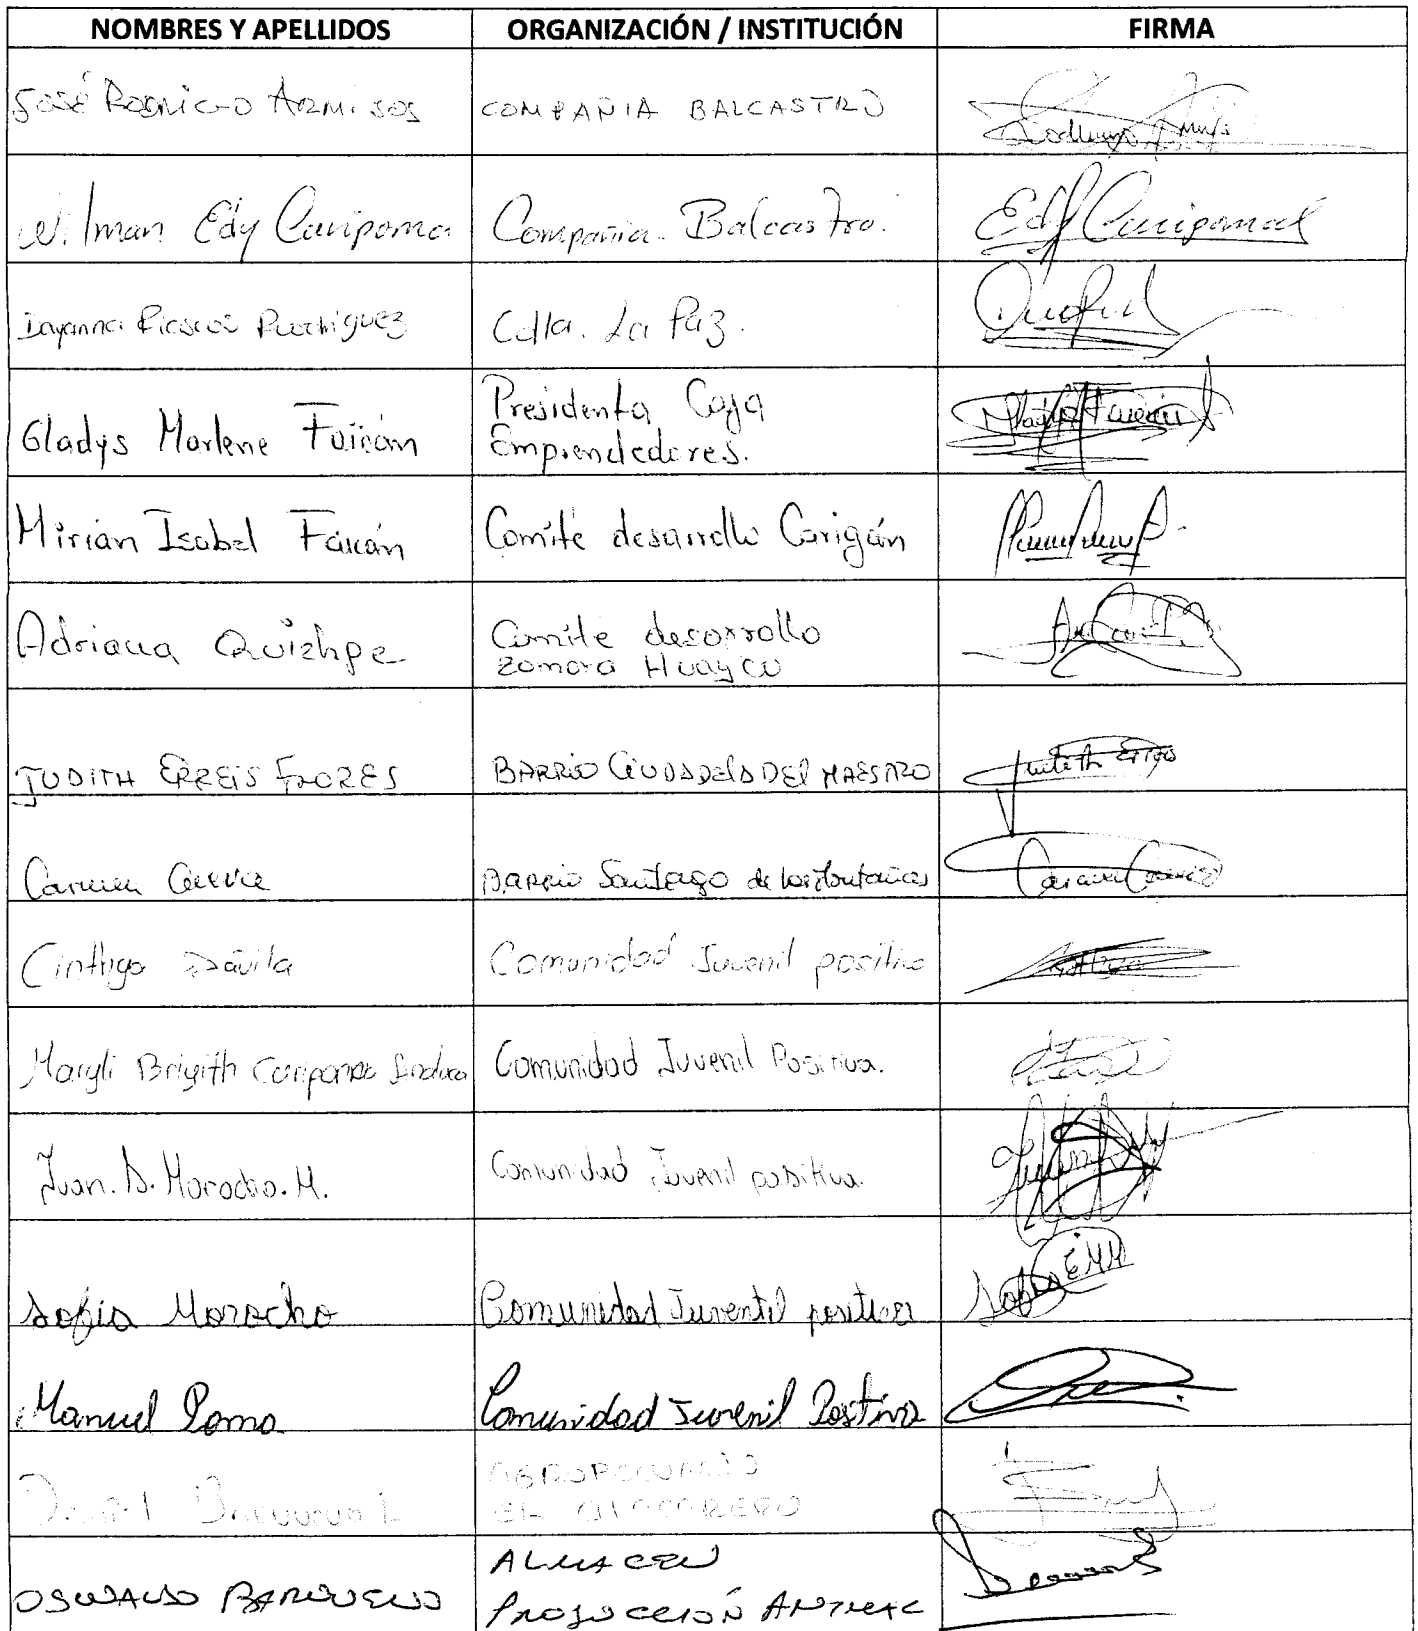 NOMBRES Y APELLIDOS ORGANIZACIÓN / INSTITUCIÓN FIRMA
José Rodrigo Armijos COMPAÑIA BALCASTRO
Wilman Edy Curipoma Compañia. Balcastro. Edy Curipoma
Dayanna Riascos Rodriguez Cdla. La Paz.
Gladys Marlene Faicán Presidenta Caja
Emprendedores.
Mirian Isabel Faicán Comité desarrollo Carigán
Adriana Quizhpe Comite desarrollo
zamora Huayco
JUDITH ERREIS FLORES BARRIO CIUDADELA DEL MAESTRO Judith
Carmen BARRIO Santiago de las Montañas Carmen
Cinthya Dávila Comunidad Juvenil positiva
Maryli Brigith Curipoma Comunidad Juvenil Positiva.
Juan. D. Morocho. M. Comunidad Juvenil positiva.
Sofia Morocho Comunidad Juventil positiva Sofia EMM
Manuel Poma Comunidad Juvenil Postiva
AGROPECUARIO
EL
OSWALDO BARNUEVO ALMACEN
PRODUCCIÓN ANIMAL